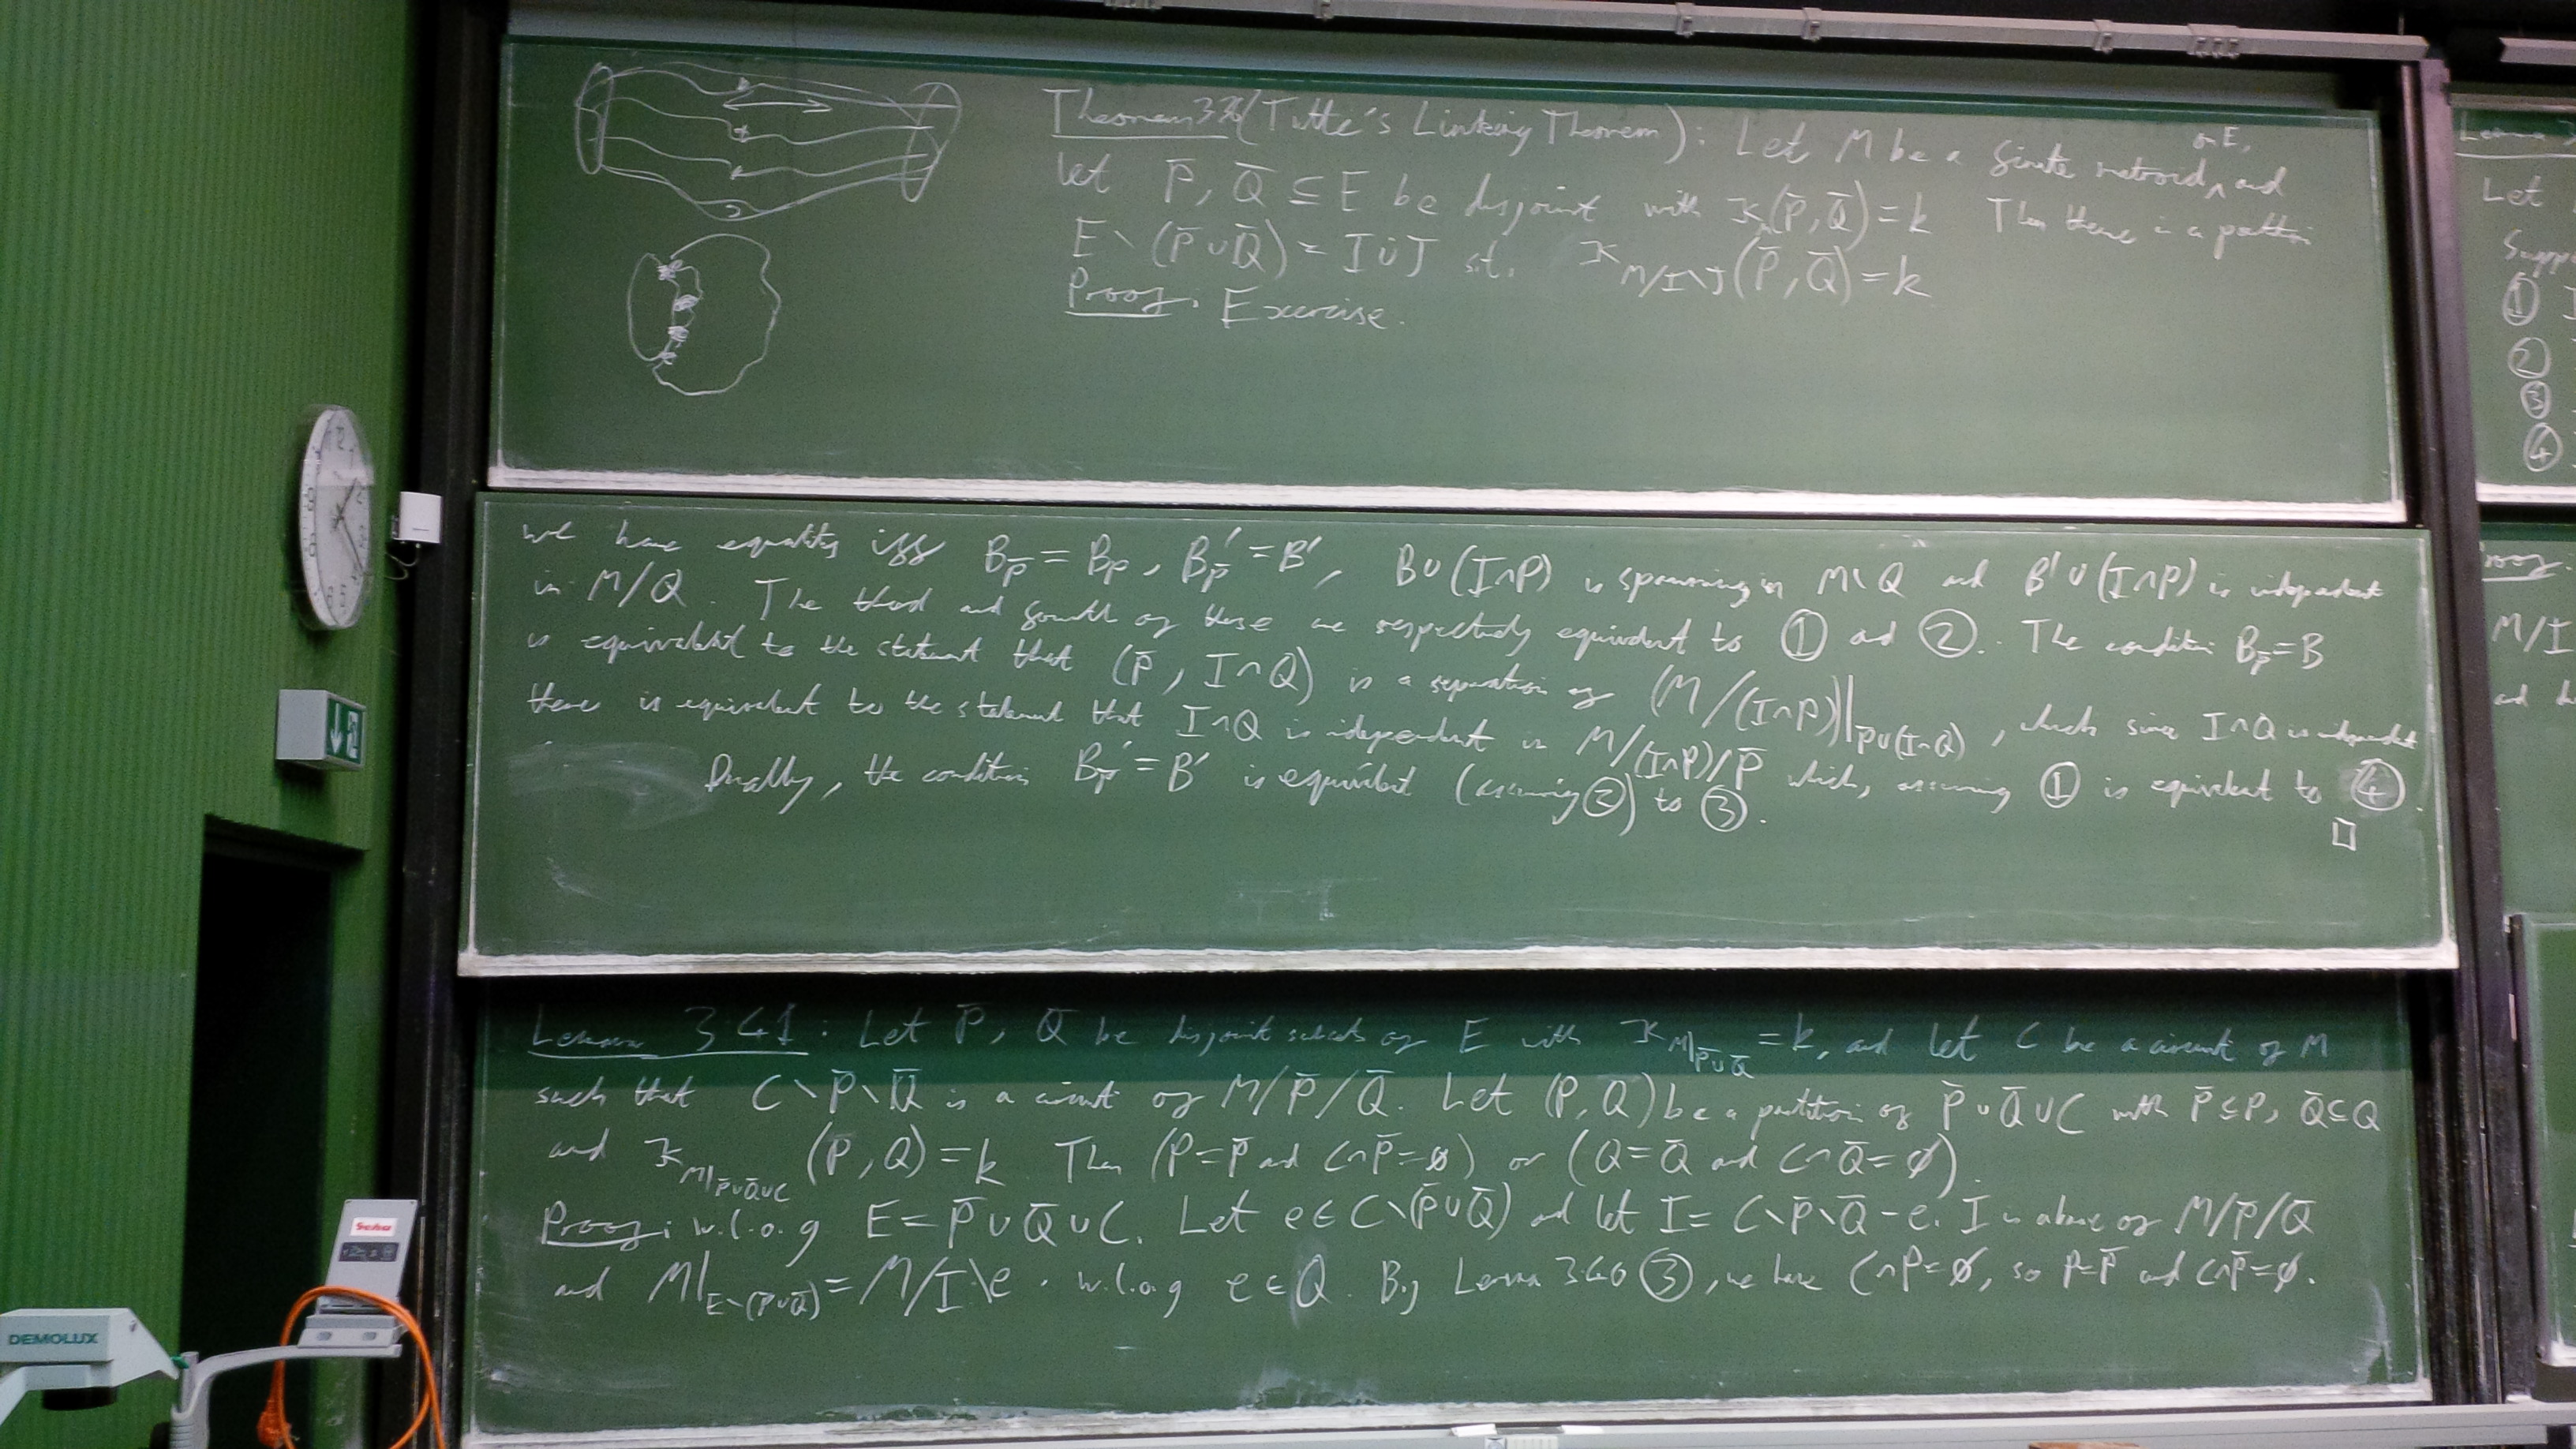 Theorem 3.3 (Tutte's Linking Theorem): Let M be a finite matroid on E, and
let P̄, Q̄ ⊆ E be disjoint with κ_M(P̄, Q̄) = k Then there is a partition
E∖(P̄∪Q̄) = I ∪̇ J s.t. κ_{M/I∖J}(P̄, Q̄) = k
Proof: Exercise.
we have equality iff B_P̄ = B_P, B_P̄' = B', B∪(I∩P) is spanning in M∖Q and B'∪(I∩P) is independent
in M/Q. The third and fourth of these are respectively equivalent to ① and ②. The condition B_P̄ = B
is equivalent to the statement that (P̄, I∩Q) is a separation of (M/(I∩P))|_{P̄∪(I∩Q)}, which since I∩Q is independent
there is equivalent to the statement that I∩Q is independent in M/(I∩P)/P̄ which, assuming ① is equivalent to ④.
Dually, the condition B_P̄' = B' is equivalent (assuming ②) to ③.
□
Lemma 3.41: Let P̄, Q̄ be disjoint subsets of E with κ_{M|P̄∪Q̄} = k, and let C be a circuit of M
such that C∖P̄∖Q̄ is a circuit of M/P̄/Q̄. Let (P,Q) be a partition of P̄∪Q̄∪C with P̄⊆P, Q̄⊆Q
and κ_{M|P̄∪Q̄∪C}(P,Q) = k Then (P=P̄ and C∩P̄=∅) or (Q=Q̄ and C∩Q̄=∅).
Proof: w.l.o.g E = P̄∪Q̄∪C. Let e∈C∖(P̄∪Q̄) and let I = C∖P̄∖Q̄-e. I is a base of M/P̄/Q̄
and M|_{E∖(P̄∪Q̄)} = M/I∖e. w.l.o.g e∈Q. By Lemma 3.40 ③, we have C∩P=∅, so P=P̄ and C∩P̄=∅.
Let
①
②
③
④
M/I
DEMOLUX